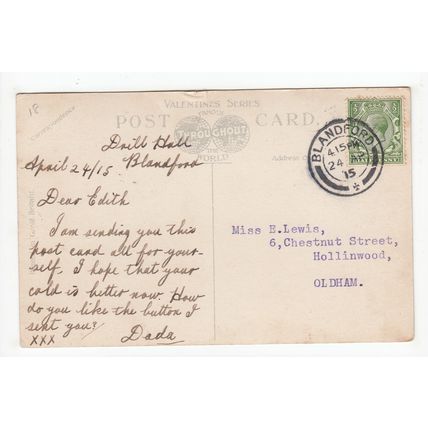 18
VALENTINES SERIES
FAMOUS
POST CARD.
THROUGHOUT
THE
WORLD
Correspondence
Address
Drill Hall
Blandford
April 24/15
Dear Edith
I am sending you this
post card all for your-
self. I hope that your
cold is better now. How
do you like the button I
sent you?
Dada
xxx
BLANDFORD
4.15 PM
24 AP
15
Miss E.Lewis,
6,Chestnut Street,
Hollinwood,
OLDHAM.